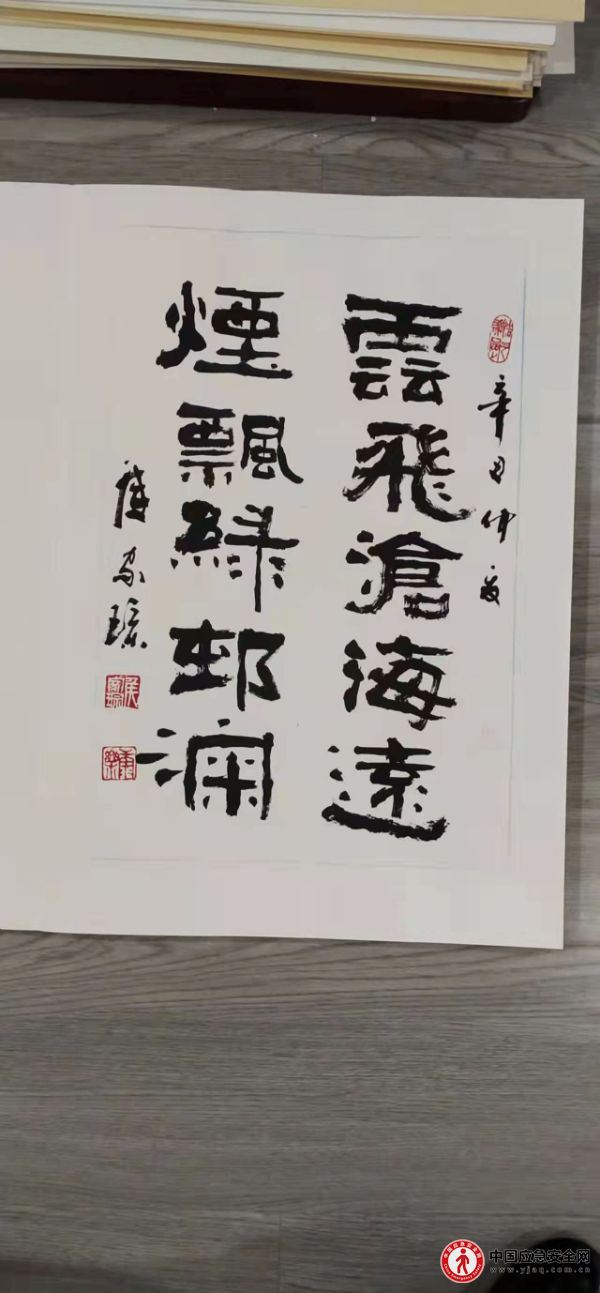 辛丑仲夏
雲飛滄海遠
煙飄綠邨深
中国应急安全网
www.yjaq.com.cn